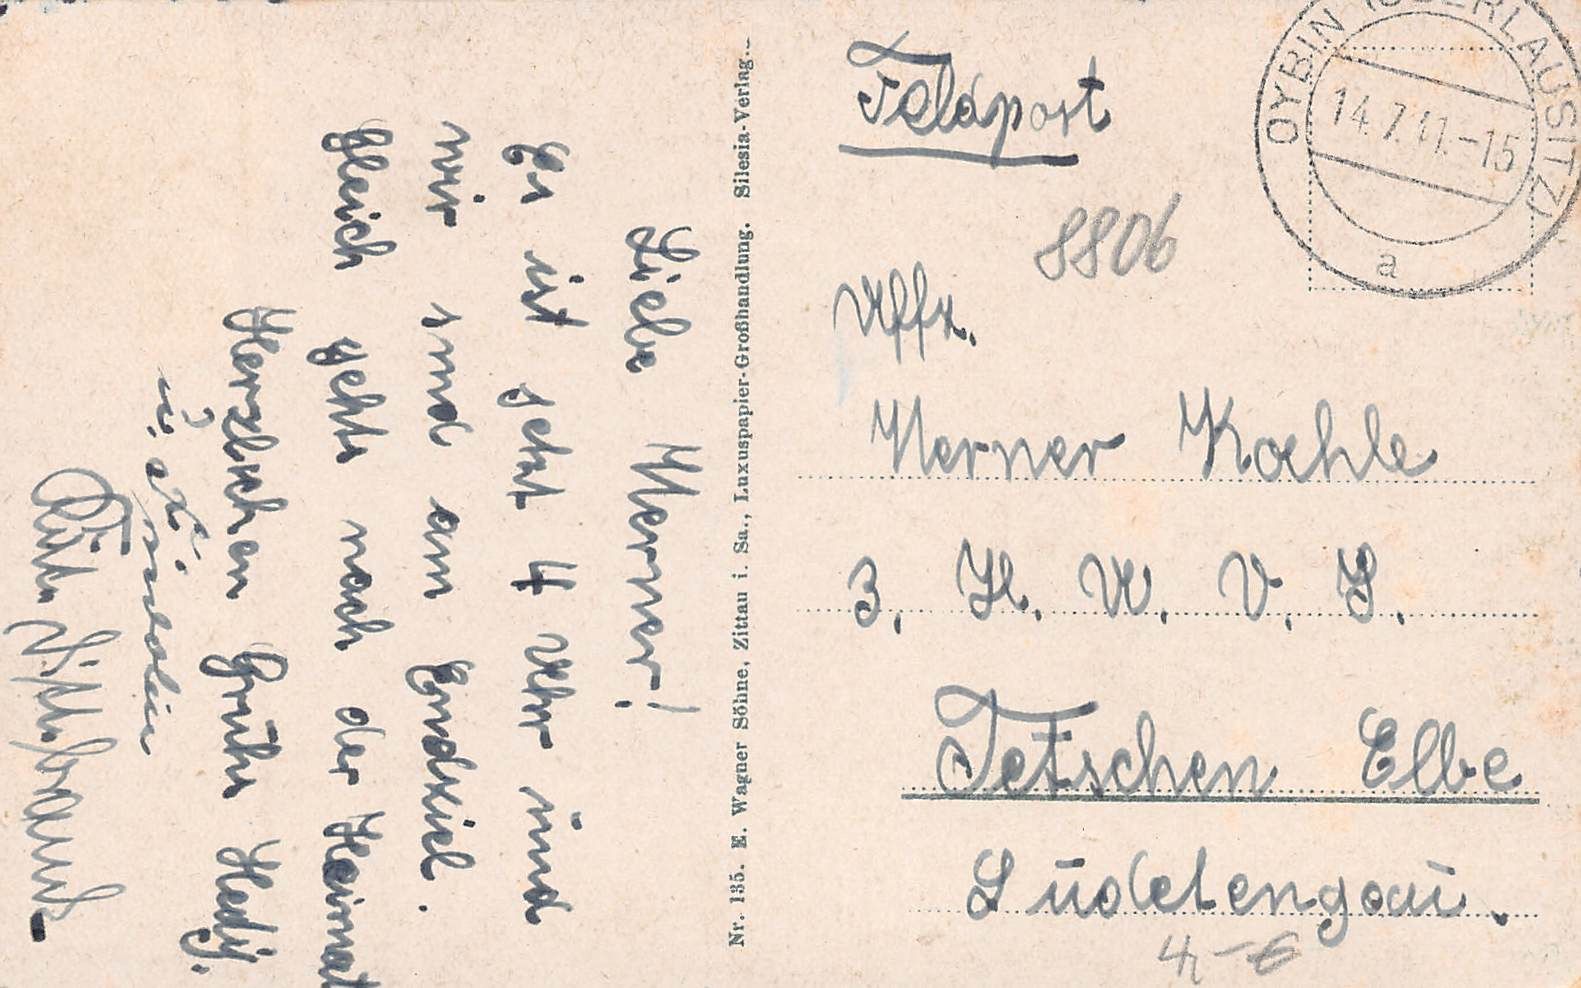 Lieber Werner!
Es ist jetzt 4 Uhr und
wir sind am Endziel.
Gleich gehts nach der Heimat
Herzlichen Gruß Hedy.
u.
Nr. 135. E. Wagner Söhne, Zittau i. Sa., Luxuspapier-Großhandlung. Silesia-Verlag.
OYBIN (OBERLAUSITZ)
14.7.41.-15
a
Feldpost
8806
Uffz.
Werner Koehle
3. H. U. V. S.
Tetschen Elbe
Sudetengau.